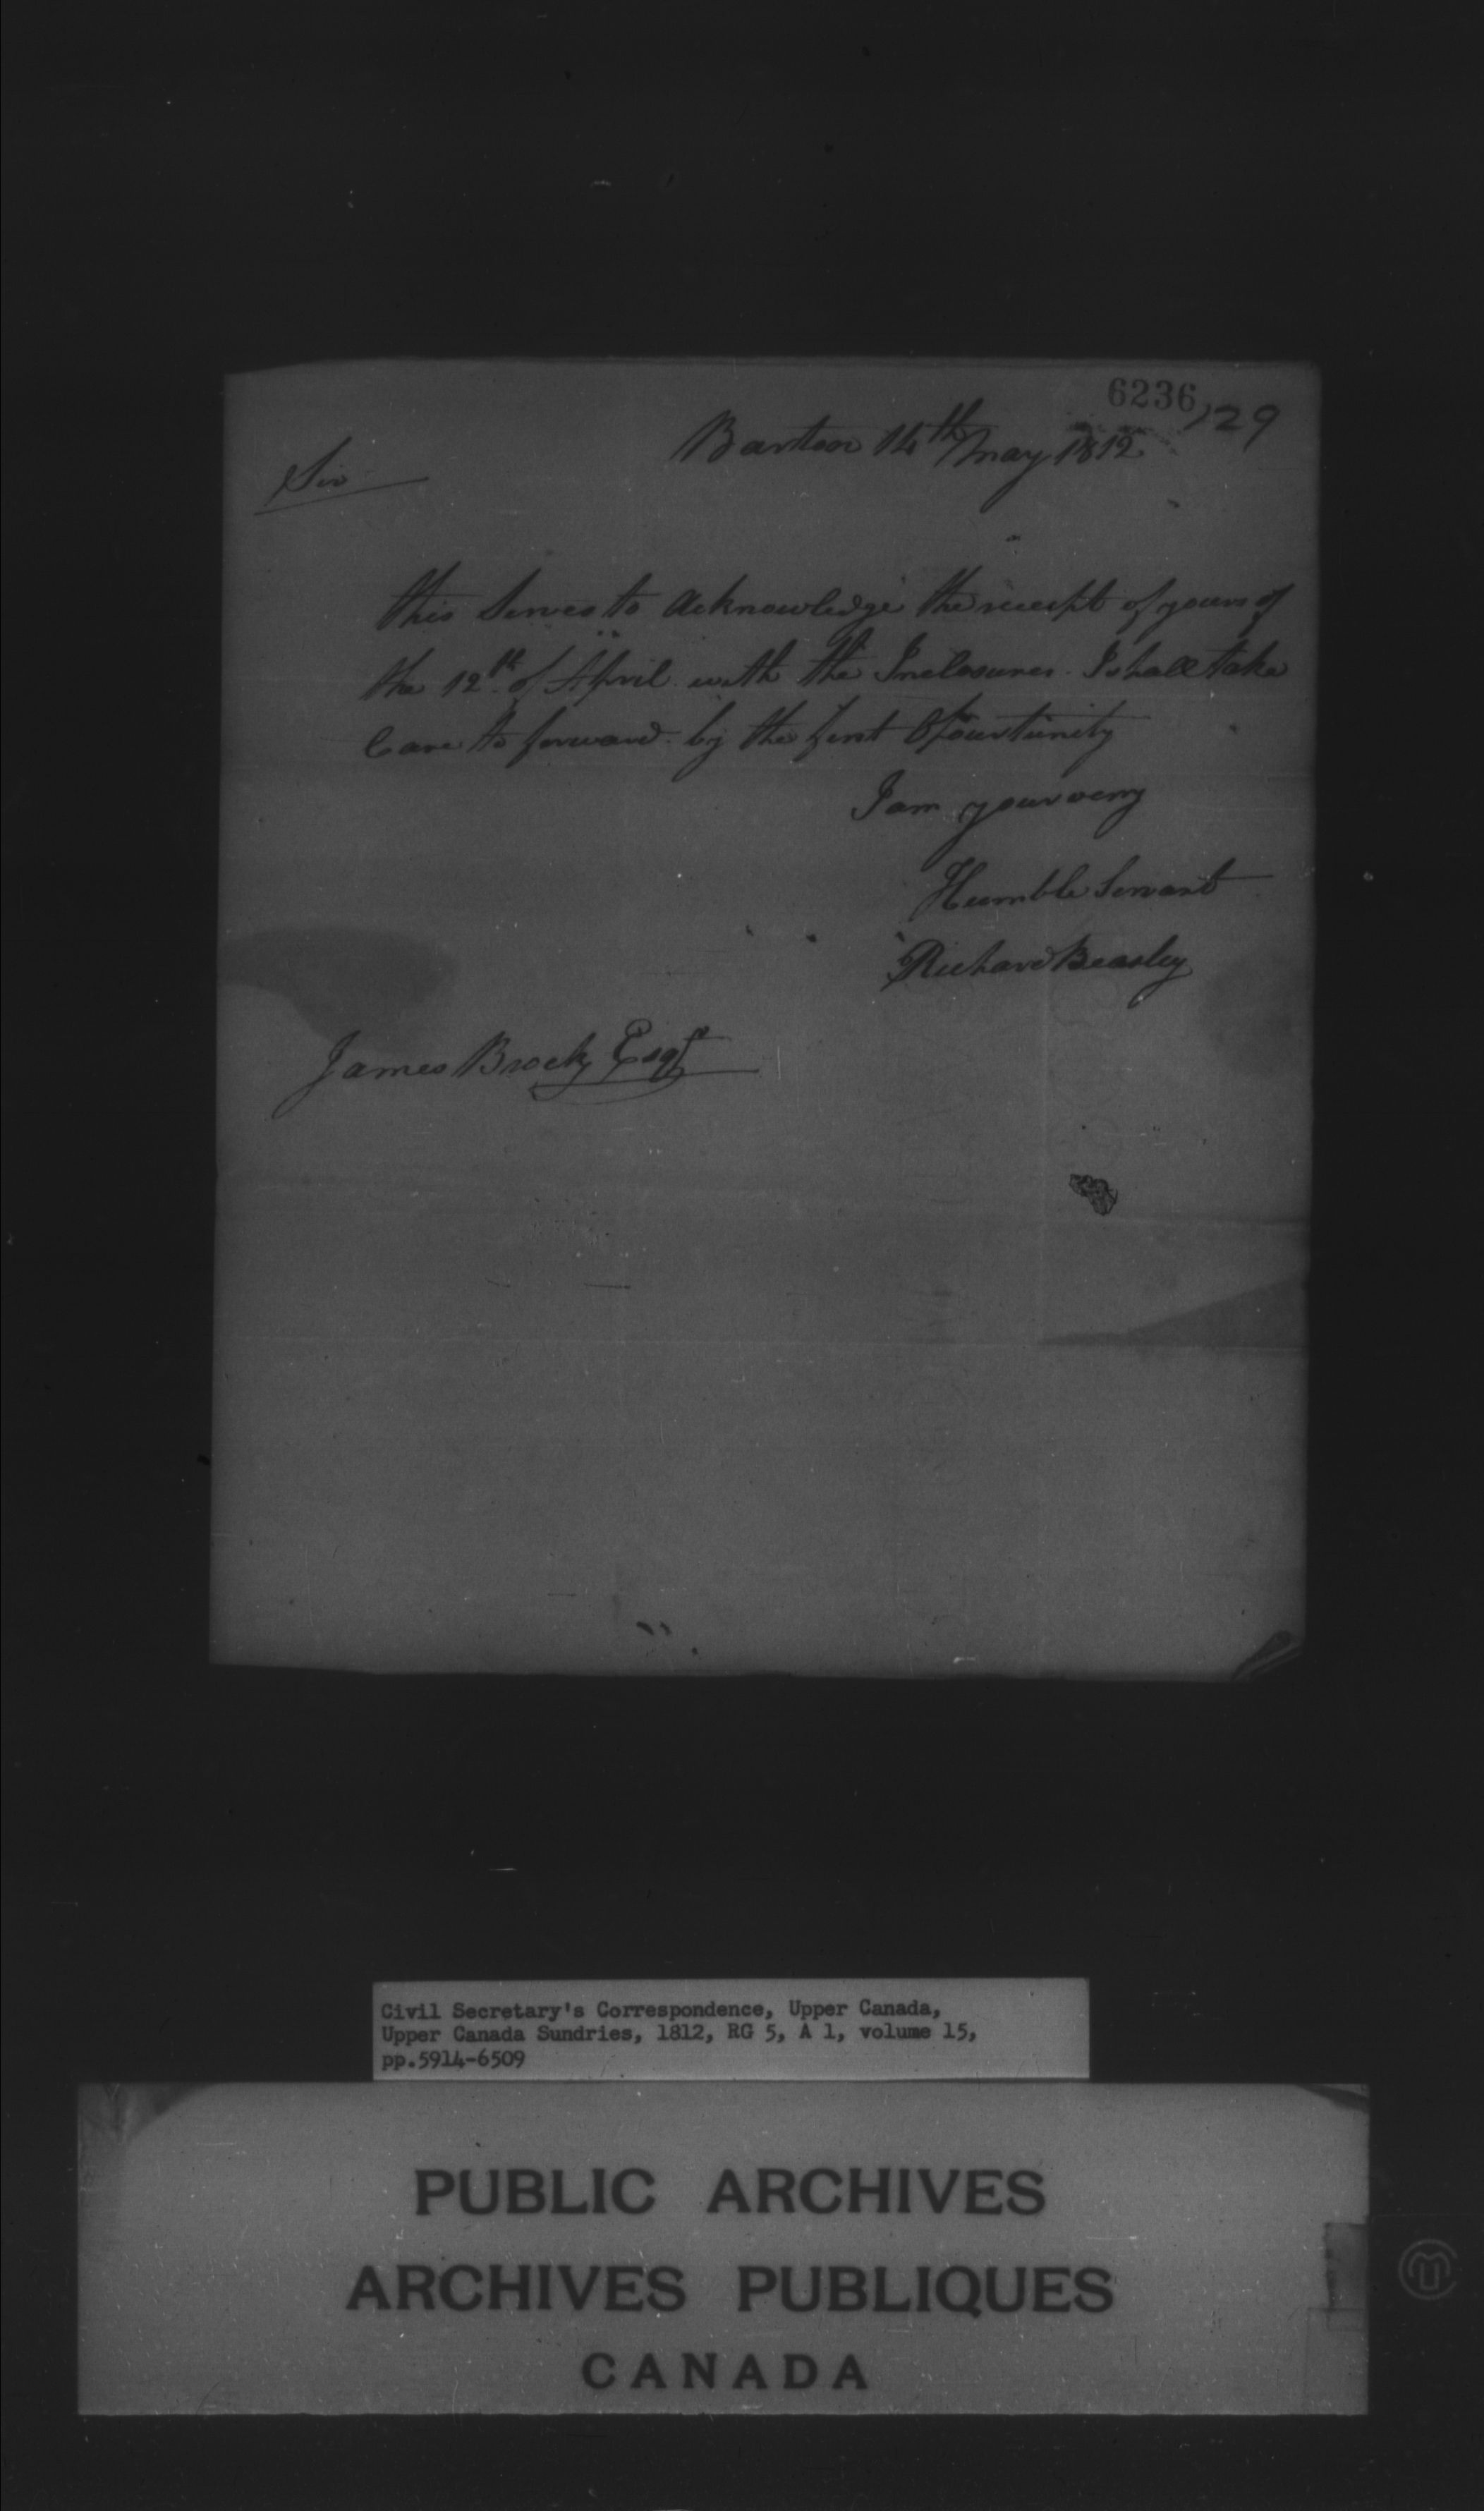 6236
129
Barton 14th May 1812
Sir
this Serves to Acknowledge the receipt of yours of
the 12th of April with the Inclosures I shall take
Care to forward by the first Opourtunity
I am your very
Humble Servant
Richard Beasley
James Brock Esqr
Civil Secretary's Correspondence, Upper Canada,
Upper Canada Sundries, 1812, RG 5, A 1, volume 15,
pp.5914-6509
PUBLIC ARCHIVES
ARCHIVES PUBLIQUES
CANADA